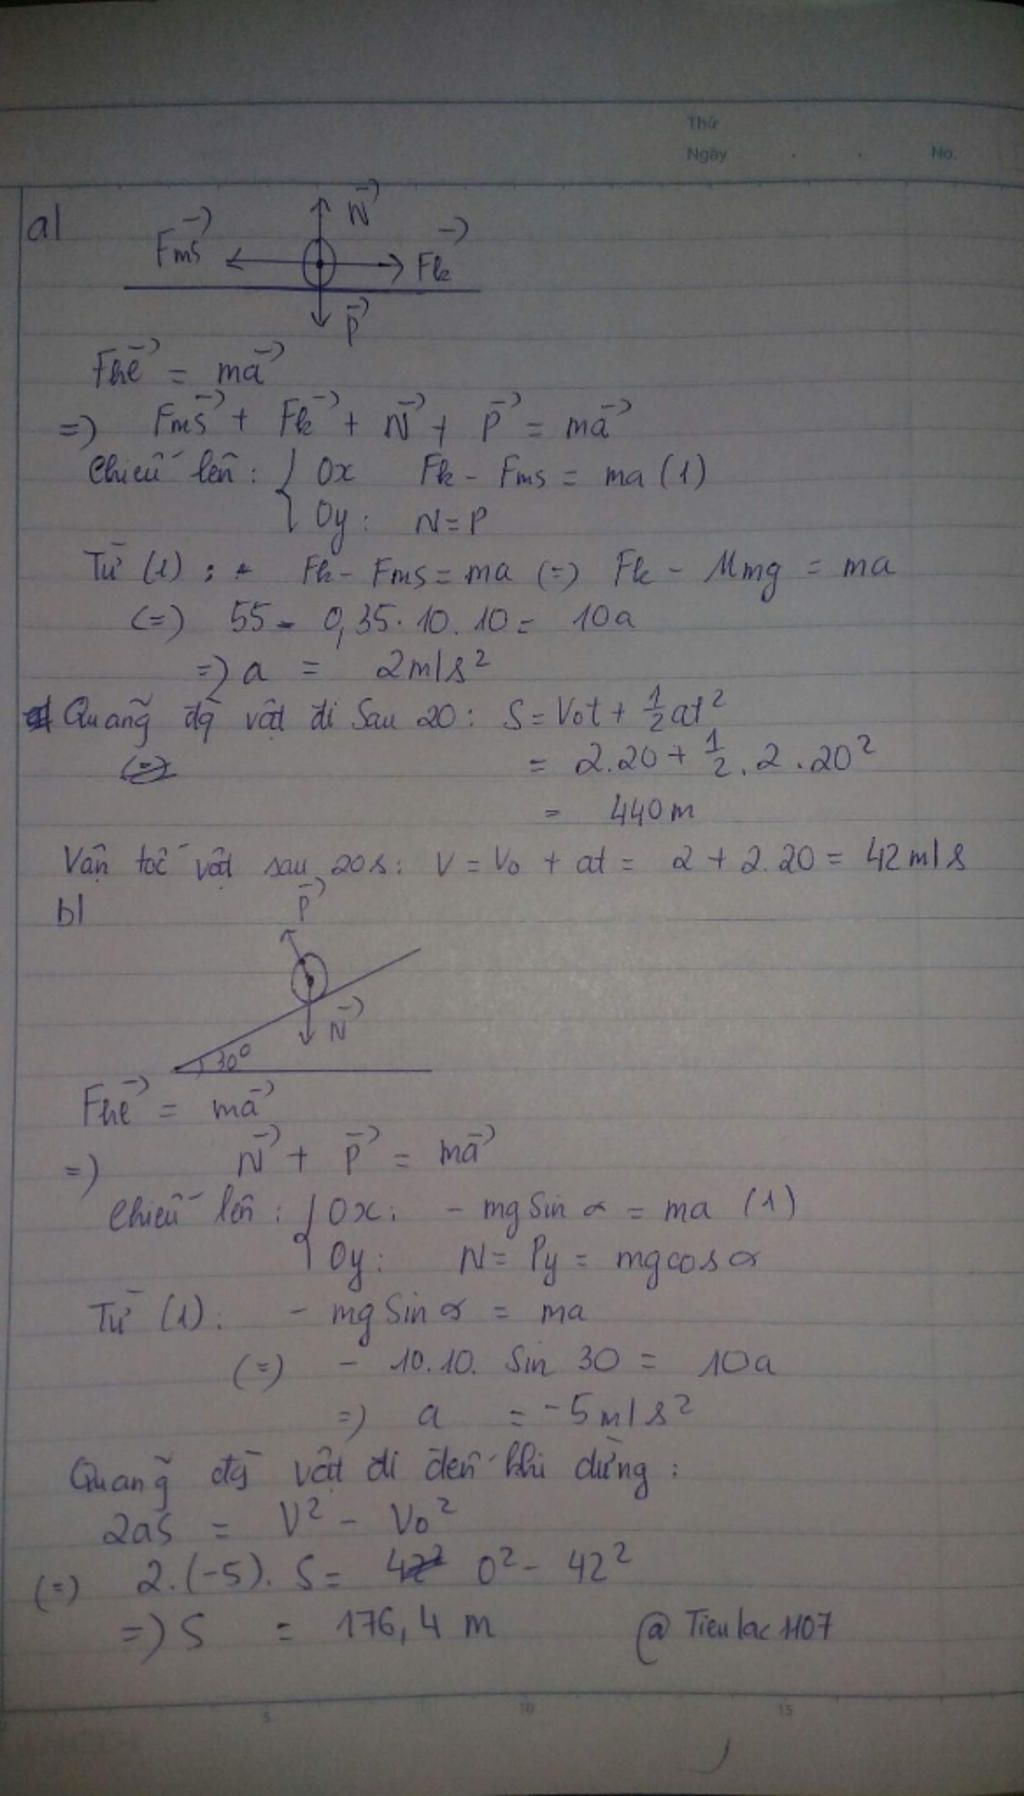 Thứ
Ngày No.
a)
N→
Fms→ Fk→
P→
Fhl→ = ma→
=) Fms→ + Fk→ + N→ + P→ = ma→
Chiếu lên: { Ox Fk - Fms = ma (1)
Oy: N = P
Từ (1): Fk - Fms = ma (=) Fk - Mmg = ma
(=) 55 - 0,35.10.10 = 10a
=) a = 2m/s²
Quãng đg vật đi sau 20: S = Vot + 1/2at²
= 2.20 + 1/2.2.20²
= 440m
Vận tốc vật sau 20s: V = Vo + at = 2 + 2.20 = 42m/s
b)
P→
N→
30°
Fhl→ = ma→
=) N→ + P→ = ma→
Chiếu lên: { Ox: - mgSin α = ma (1)
Oy: N = Py = mgcos α
Từ (1): - mgSin α = ma
(=) - 10.10. Sin 30 = 10a
=) a = -5m/s²
Quãng đg vật đi đến khi dừng:
2aS = V² - Vo²
(=) 2.(-5).S = 0² - 42²
=) S = 176,4 m @Tieulac1107
5 10 15